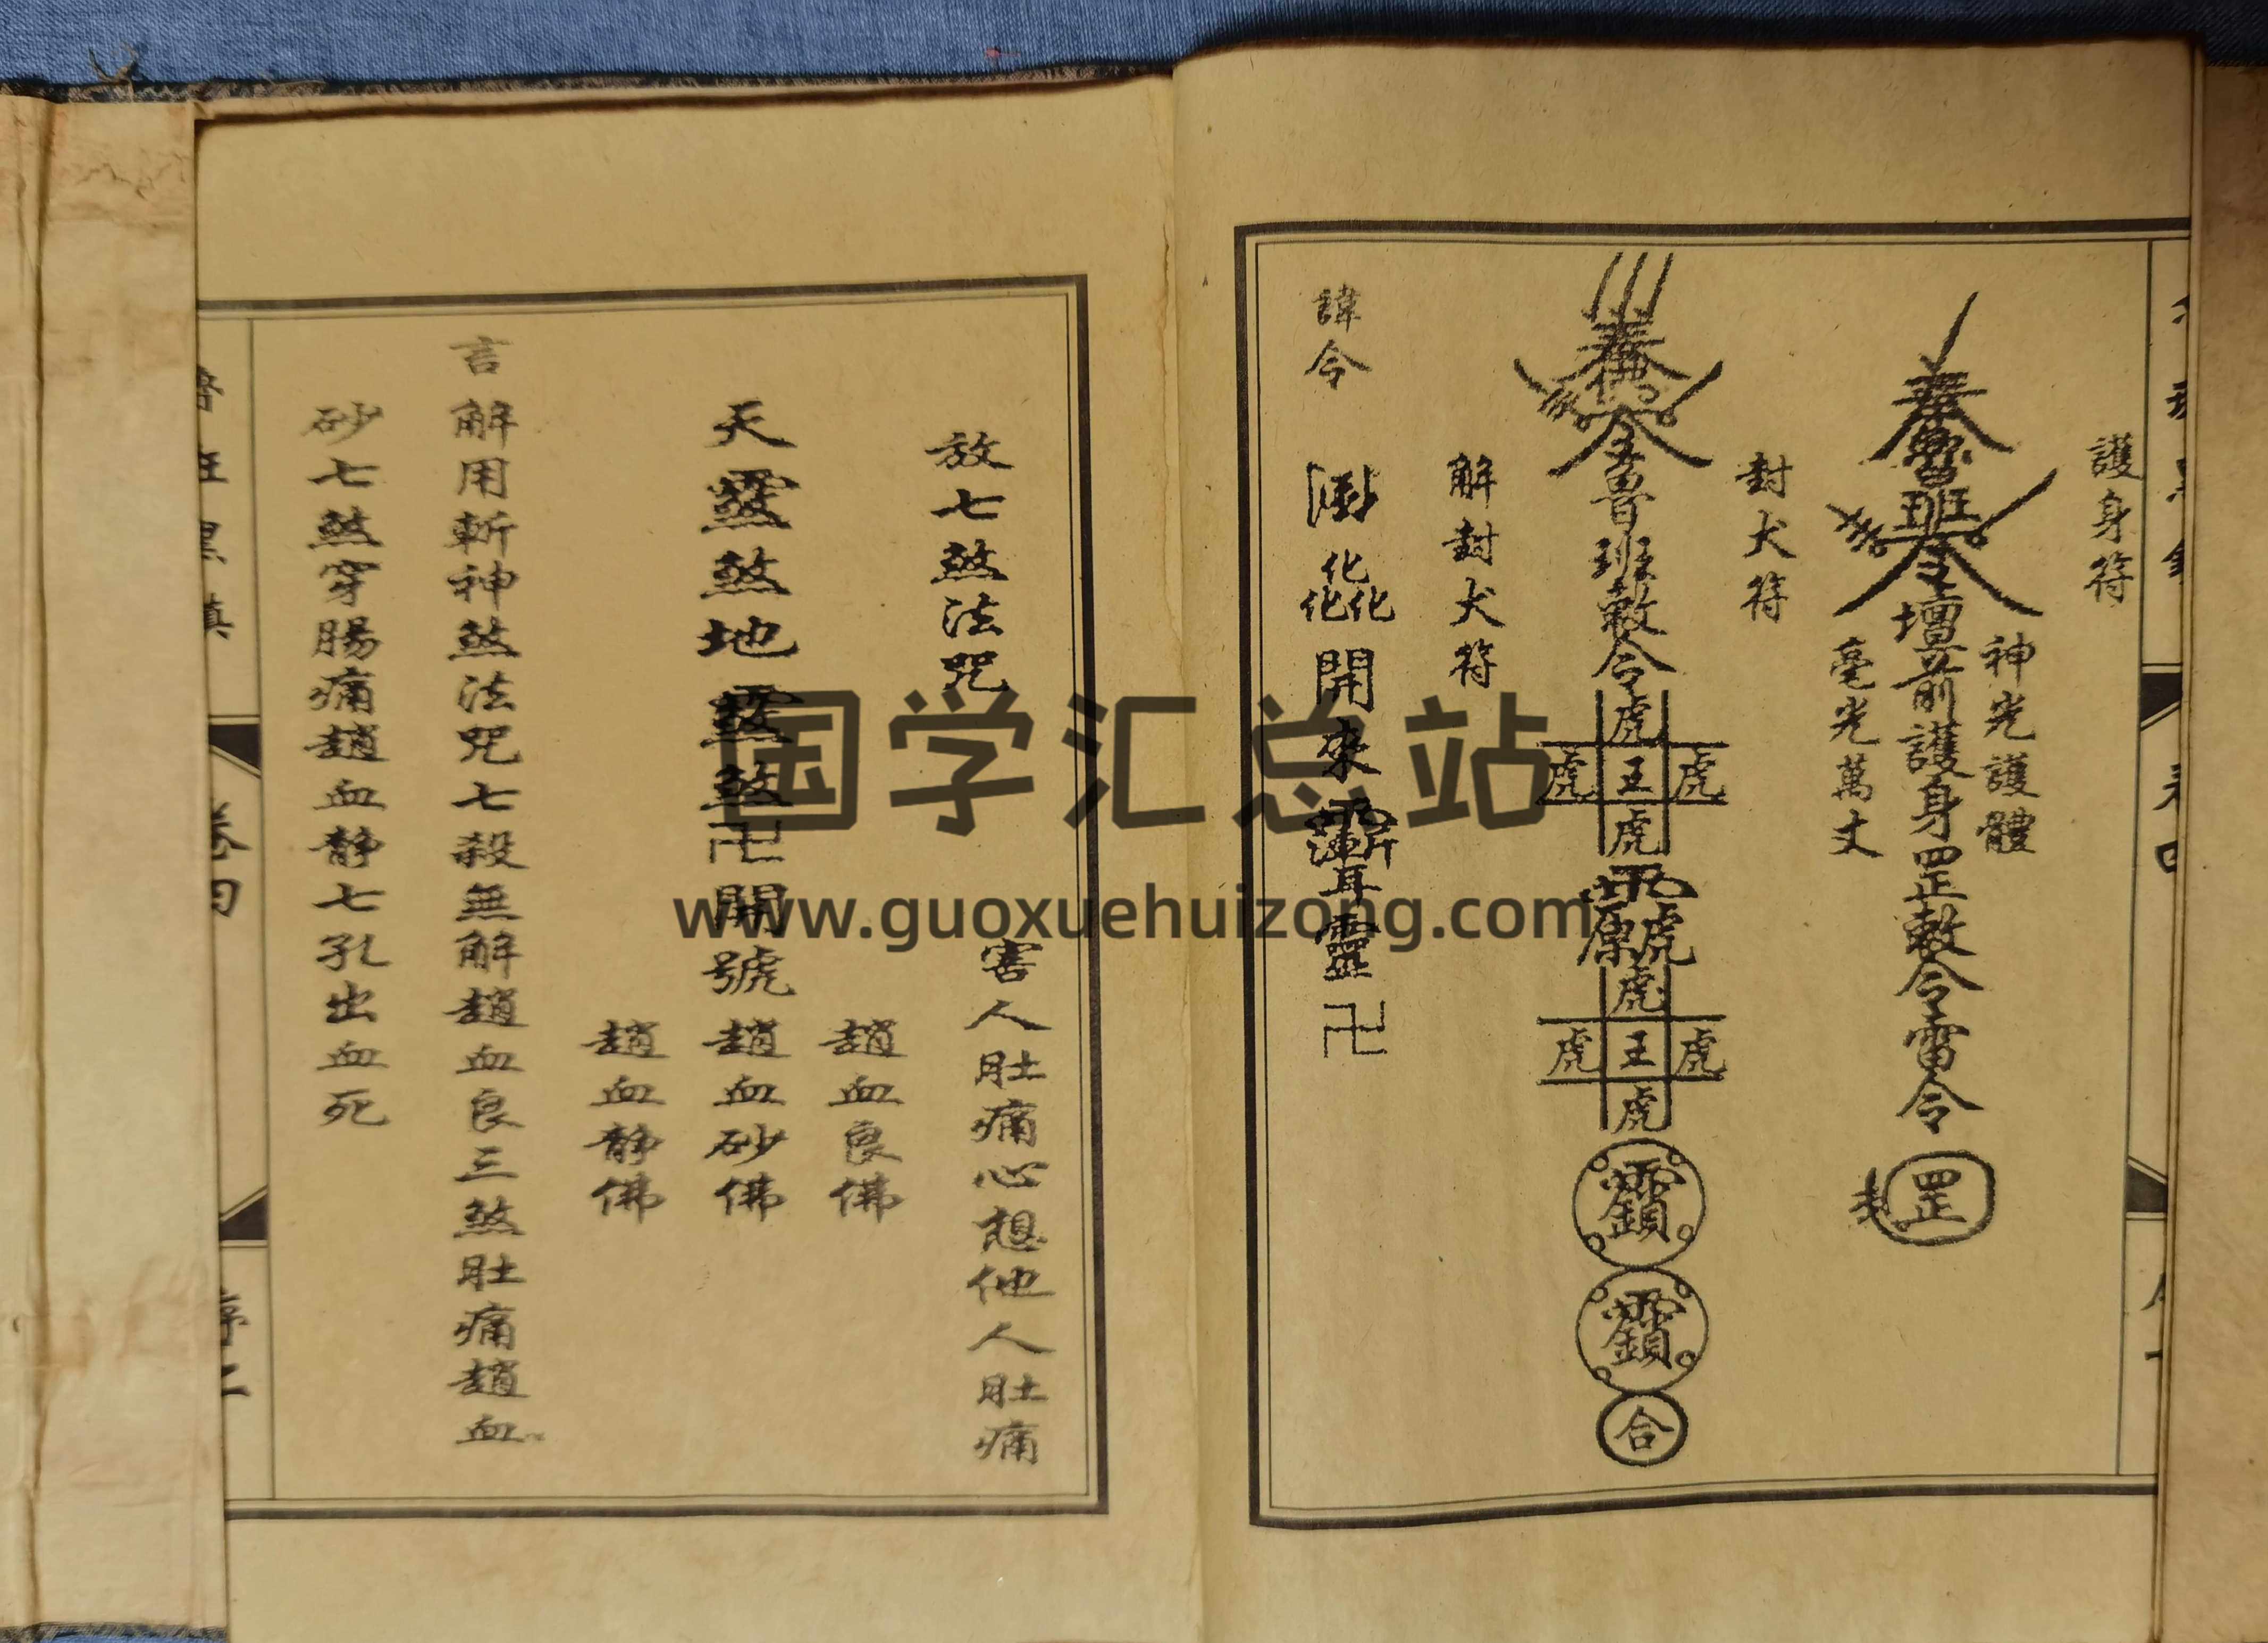 護身符
奉魯班令壇前護身罡敕令雷令罡
神光護體
毫光萬丈
封犬符
奉佛令魯班敕令
虎
虎王虎
虎
虎
虎王虎
虎
合
解封犬符
諱令
化化化開來
耳靈卍
放七煞法咒
害人肚痛心想他人肚痛
天
煞地
煞卍開號
趙血良佛
趙血砂佛
趙血静佛
言解用斬神煞法咒七殺無解趙血良三煞肚痛趙血
砂七煞穿腸痛趙血静七孔出血死
卷四
国学汇总站
www.guoxuehuizong.com